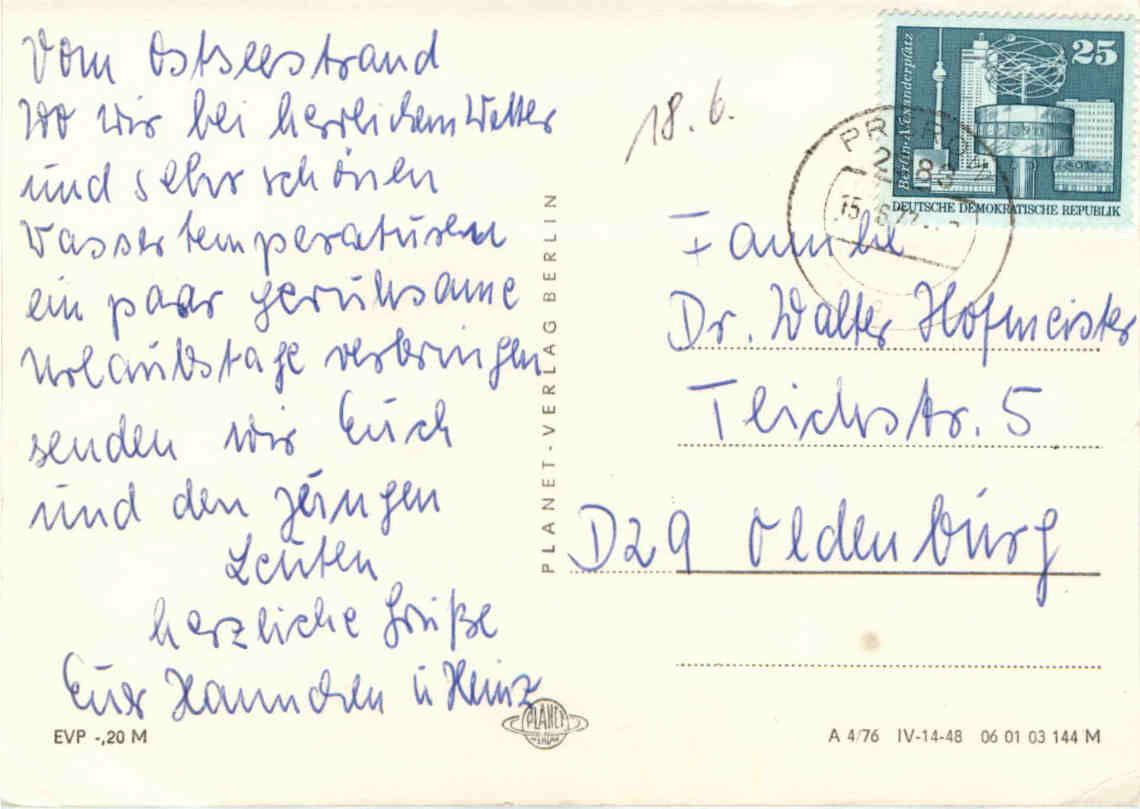 Vom Ostseestrand
wo wir bei herrlichem Wetter
und sehr schönen
Wassertemperaturen
ein paar geruhsame
Urlaubstage verbringen
senden wir Euch
und den jungen
Leuten
herzliche Grüße
Euer Hannchen u Heinz
EVP -,20 M
PLANET-VERLAG BERLIN
PLANET
18. 6.
Berlin-Alexanderplatz
25
DEUTSCHE DEMOKRATISCHE REPUBLIK
PREROW
2383
Familie
Dr. Walter Hofmeister
Teichstr. 5
D29 Oldenburg
A 4/76 IV-14-48 06 01 03 144 M